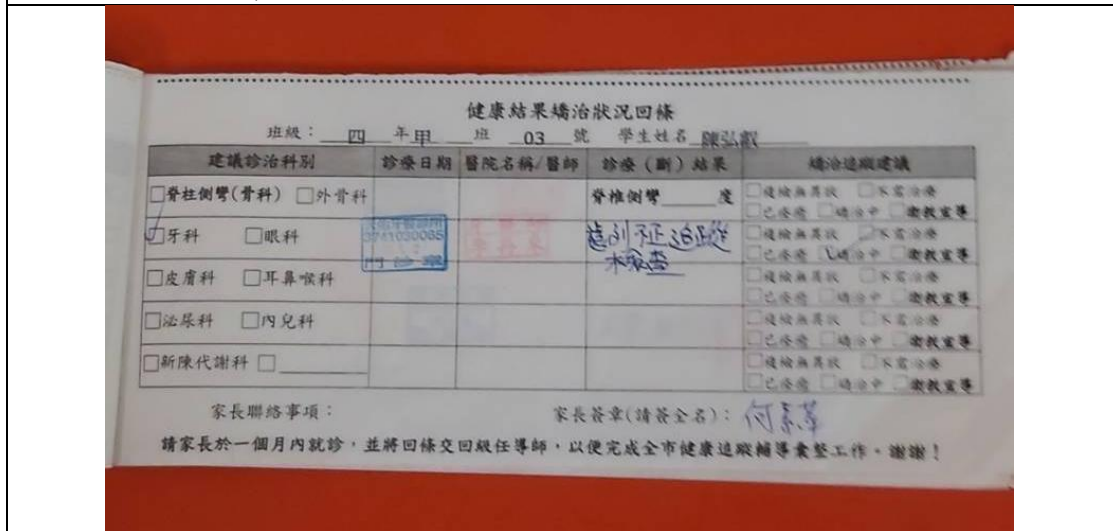 健康結果矯治狀況回條
班級： 四 年 甲 班 03 號 學生姓名 陳弘叡
建議診治科別 診療日期 醫院名稱/醫師 診療（斷）結果 矯治追蹤建議
□脊柱側彎(骨科) □外骨科 脊椎側彎 度 □複檢無異狀 □不需治療
□已痊癒 □矯治中 □衛教宣導
□牙科 □眼科 3741030085 門診章 追蹤 □複檢無異狀 □不需治療
□已痊癒 □矯治中 □衛教宣導
□皮膚科 □耳鼻喉科 □複檢無異狀 □不需治療
□已痊癒 □矯治中 □衛教宣導
□泌尿科 □內兒科 □複檢無異狀 □不需治療
□已痊癒 □矯治中 □衛教宣導
□新陳代謝科 □ □複檢無異狀 □不需治療
□已痊癒 □矯治中 □衛教宣導
家長聯絡事項： 家長簽章(請簽全名)： 何素華
請家長於一個月內就診，並將回條交回級任導師，以便完成全市健康追蹤輔導彙整工作。謝謝！